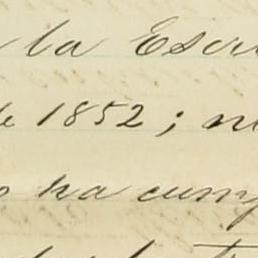 la Escri
de 1852; ni
ha cump